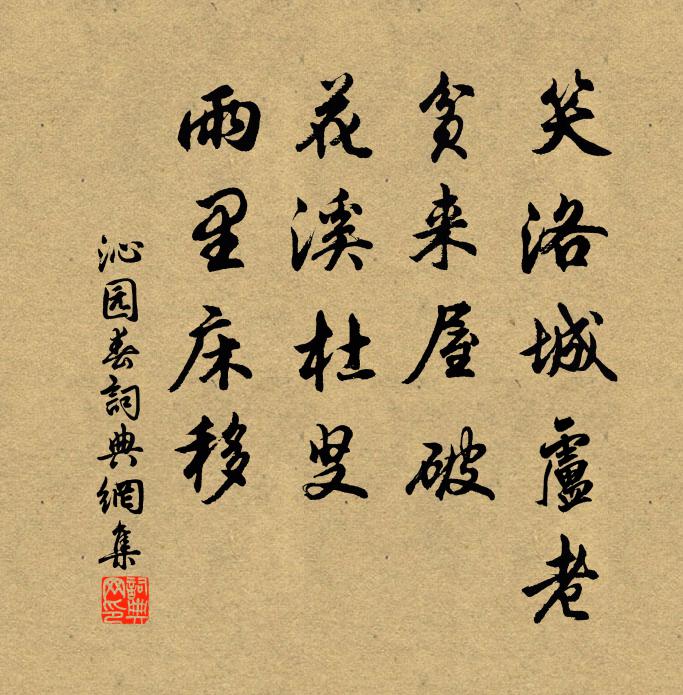 笑洛城盧老
貧来屋破
花溪杜叟
雨里床移
沁园春詞典網集
詞典网印